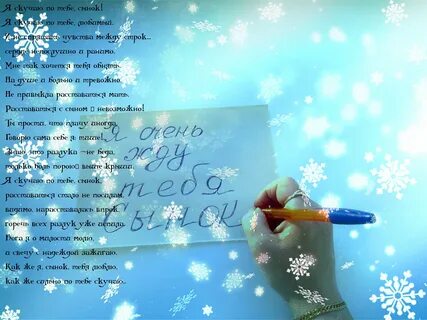 Я скучаю по тебе, сынок!
Я скучаю по тебе, любимый.
чувства между строк..
сердце непослушно и ранимо.
Мне так хочется тебя обнять.
На душе и больно и тревожно.
Не привыкла расставаться мать.
Расставаться с сыном невозможно!
Ты прости, что плачу иногда,
Говорю сама себе я: тише!
Знаю, что разлука –не беда,
только боль порою выше крыши.
Я скучаю по тебе, сынок,
расставаться стало не по силам,
видимо, нарасставалась впрок
горечь всех разлук уже испила.
Бога я о малости молю,
а свечу с надеждой зажигаю.
Как же я, сынок, тебя люблю,
как же сильно по тебе скучаю..
Я очень
жду
тебя
Сынок